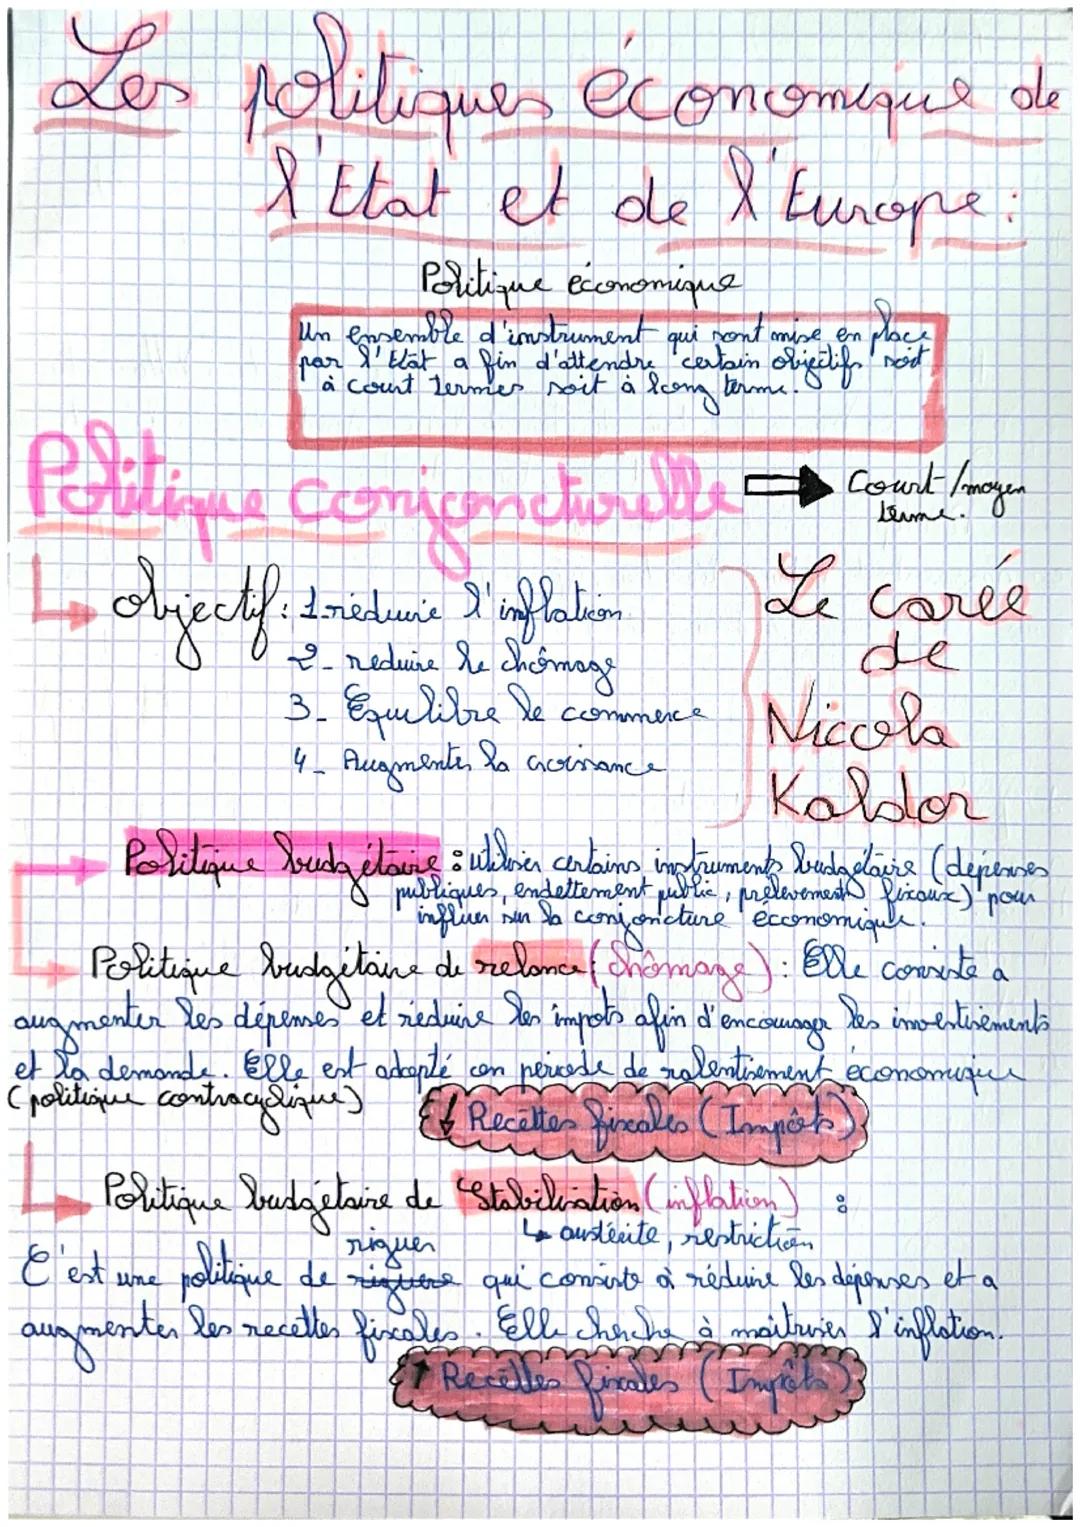 Les politiques économique de
l'Etat et de l'Europe :
Politique économique
Un ensemble d'instrument qui sont mise en place
par l'Etat a fin d'attendre certain objectifs soit
à court termes soit à long terme.
Politique conjoncturelle ⇒ Court/moyen
terme.
objectif : 1-réduire l'inflation
2- reduire le chômage
3- Equilibre le commerce
4- Augmenter la croissance
Le carée
de
Niccola
Kaldor
Politique budgétaire : utiliser certains instruments budgétaire (dépenses
publiques, endettement public, prélevement fixaux) pour
influer sur la conjoncture économique.
Politique budgétaire de relance (chômage) : Elle consiste a
augmenter les dépenses et réduire les impots afin d'encourager les investisements
et la demande. Elle est adopté en periode de ralentisement économique
(politique contracyclique)
↓ Recettes fiscales (Impôts)
Politique budgétaire de Stabilisation (inflation) :
↳ austérite, restriction
riguer
C'est une politique de qui consiste à réduire les dépenses et a
augmenter les recettes fiscales. Elle cherche à maitriser l'inflation.
↑ Recettes fiscales (Impôts)